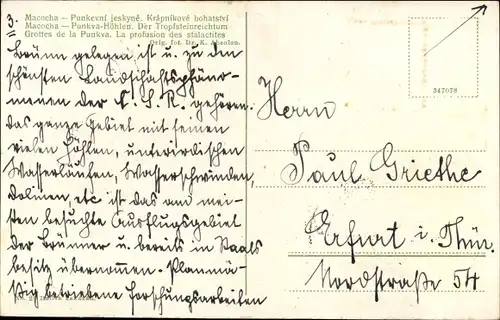 3.
Macocha — Punkevní jeskyně. Krápníkové bohatství
Macocha — Punkva-Höhlen. Der Tropfsteinreichtum
Grottes de la Punkva. La profusion des stalactites
Orig. fot. Dr. K. Absolon.
347078
Brünn gelegen ist u. zu den
schönsten Landschaftsphäno-
menen der Č. S. R. gehören.
Das ganze Gebiet mit seinen
vielen Höhlen, unterirdischen
Wasserläufen, Wasserschwinden,
Dolinen, etc ist das am mei-
sten besuchte Ausflugsgebiet
der Brünner u. bereits in Staats
besitz übernommen. Planmä-
ßig betriebene Forschungsarbeiten
Herrn
Paul Griethe
Erfurt i. Thür.
Nordstraße 54